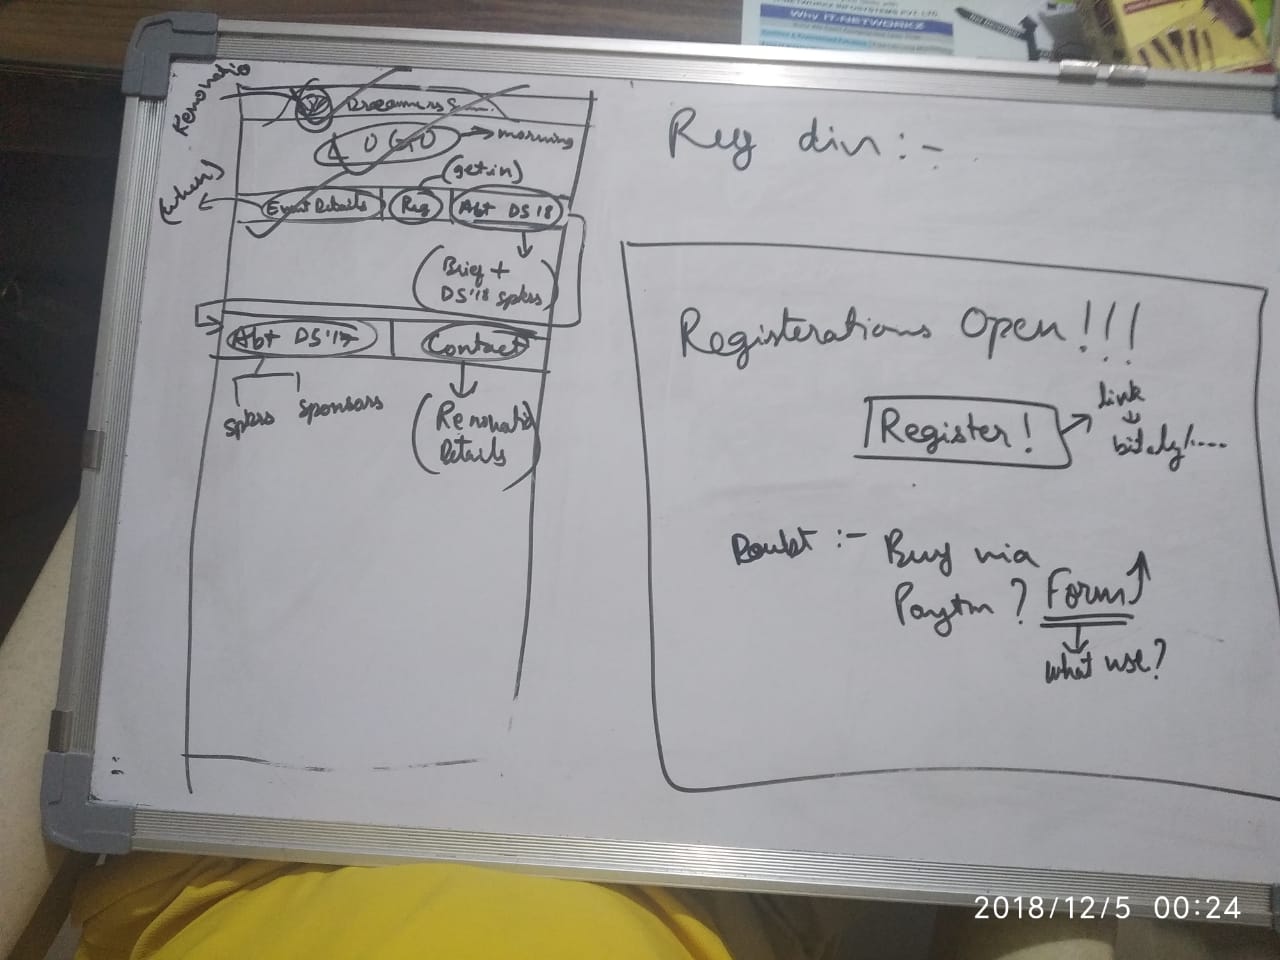 Why IT-NETWORKZ
Renovatio
Dreamers S....
LOGO → morning
(when)
(get in)
Event Details
Reg
Abt DS'18
(Brief +
DS'18 spkrs)
Abt DS'17
Contact
spkrs
sponsors
(Renovatio
Details)
Reg div :-
Registerations Open!!!
Register!
link
bit.ly/....
Doubt :- Buy via
Paytm? Form
what use?
2018/12/5 00:24